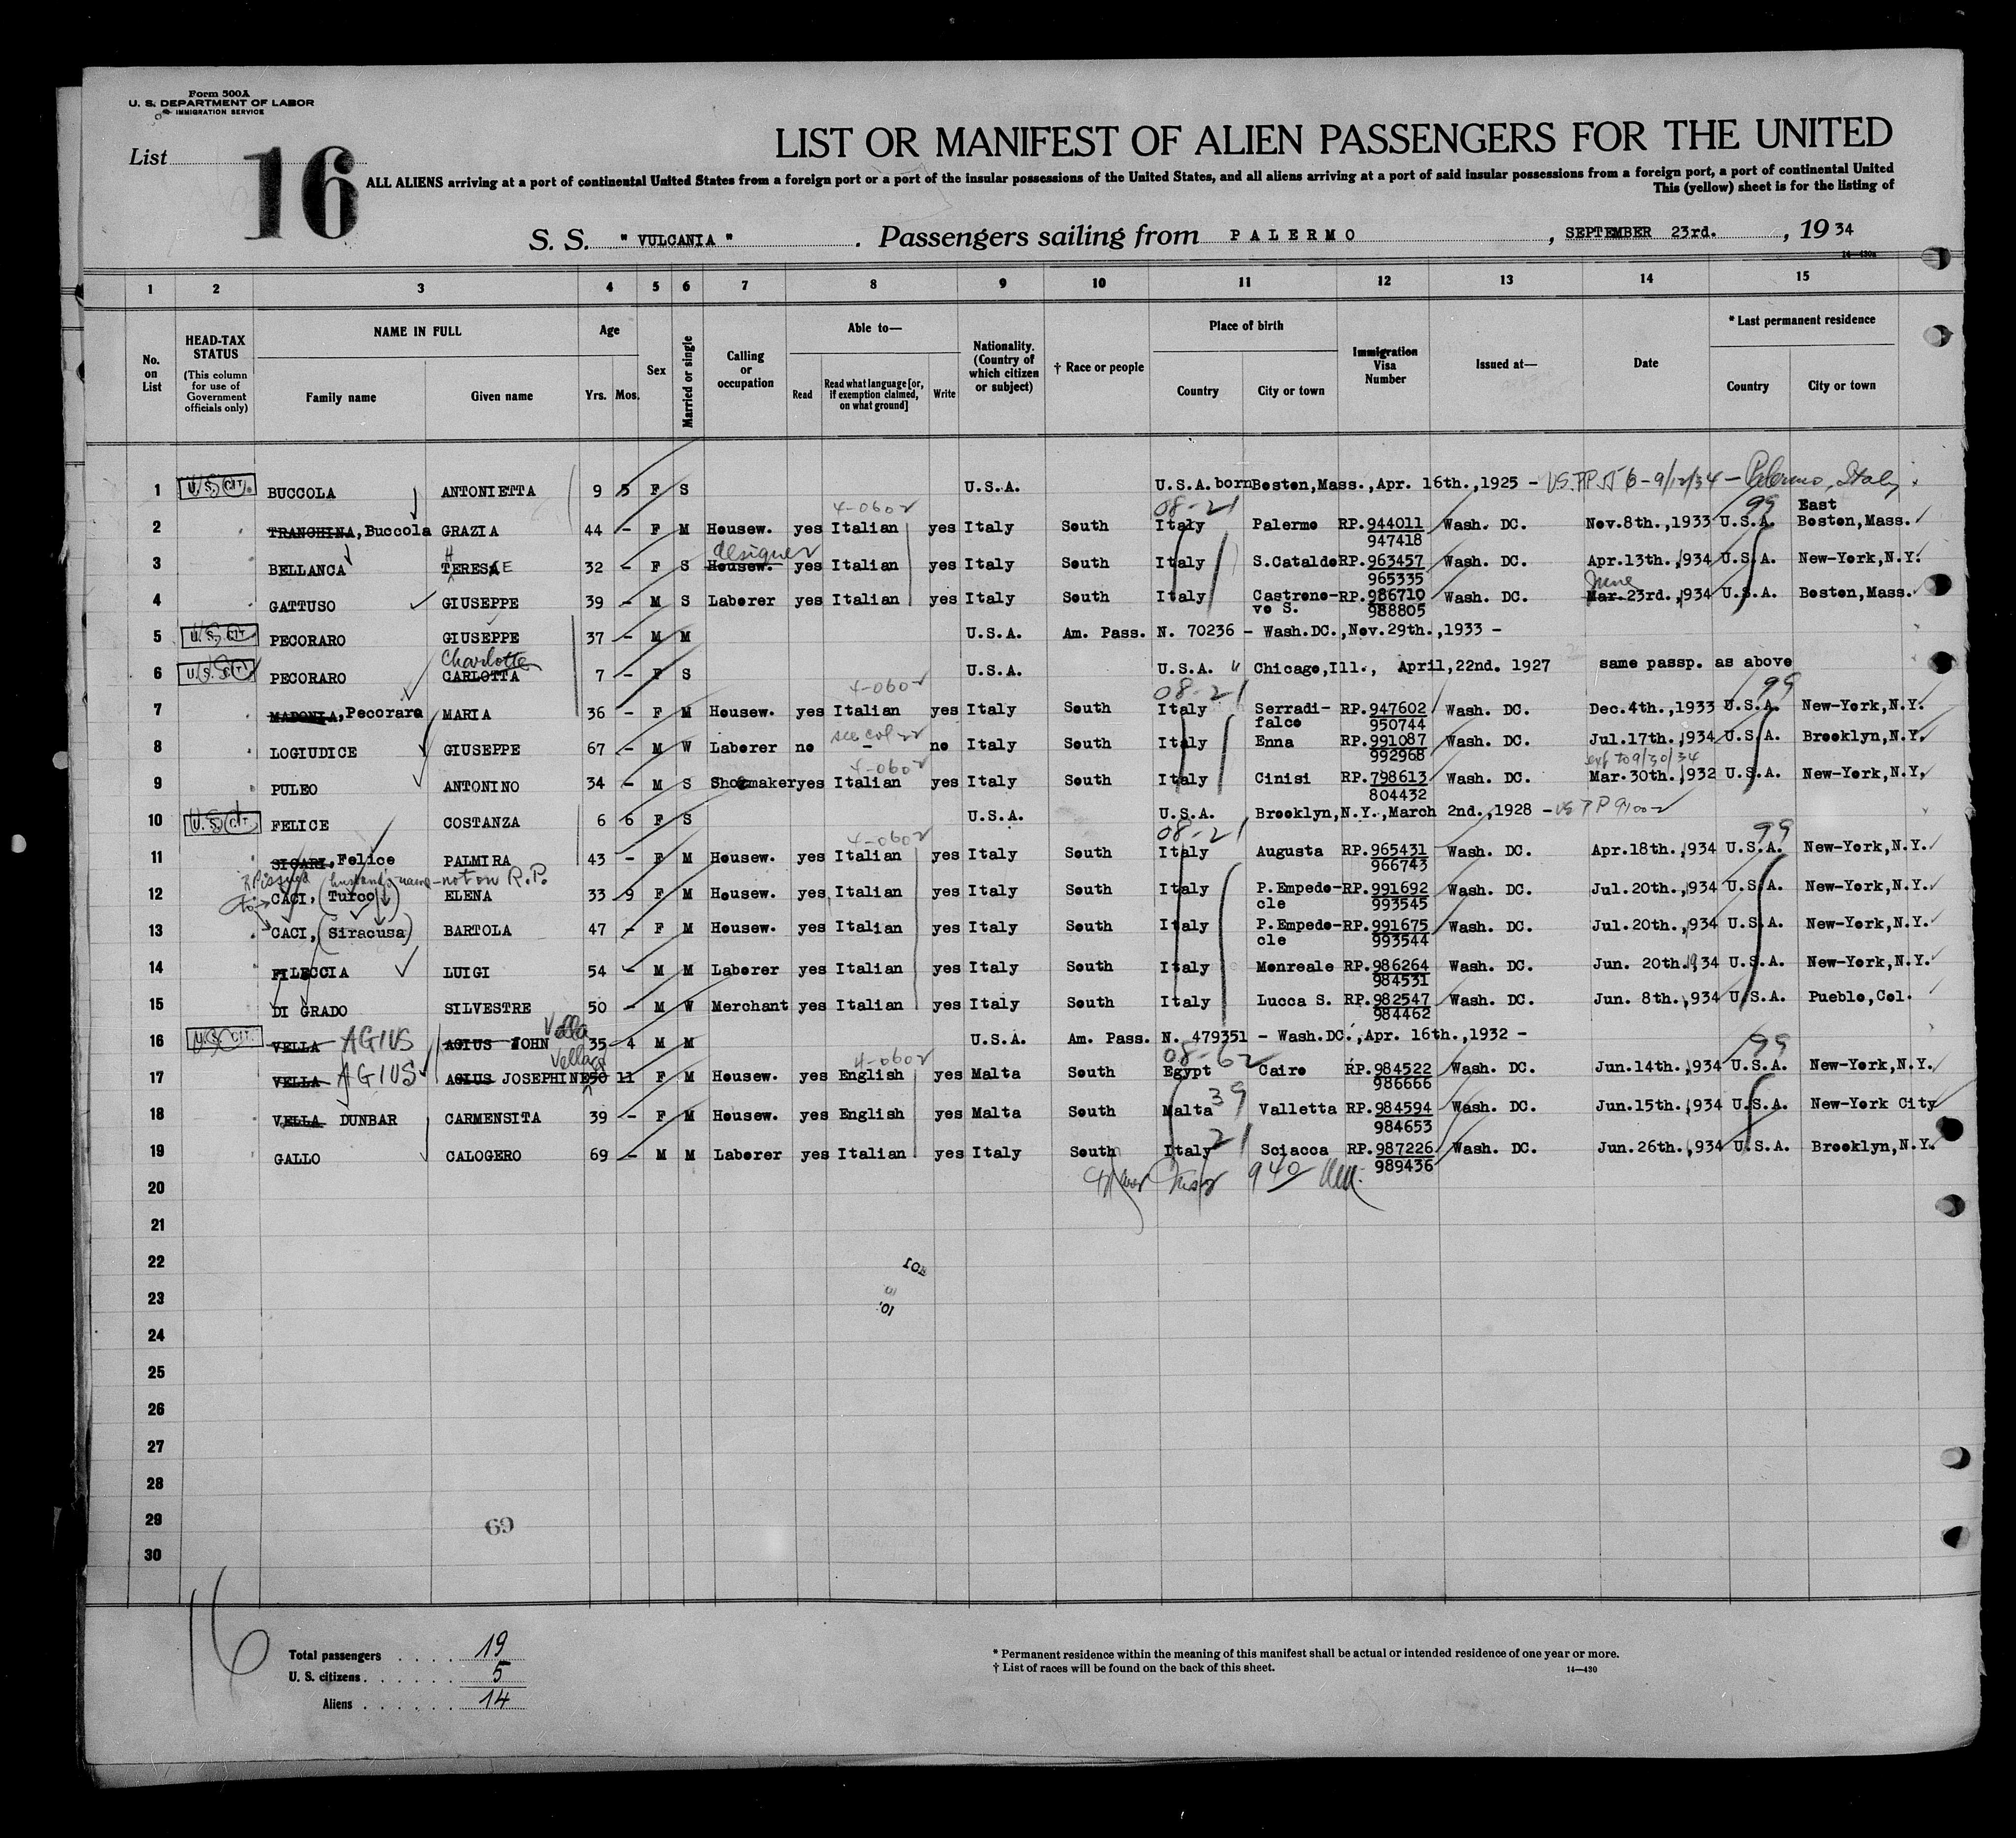 Form 500A
U. S. DEPARTMENT OF LABOR
IMMIGRATION SERVICE
List 16
LIST OR MANIFEST OF ALIEN PASSENGERS FOR THE UNITED
ALL ALIENS arriving at a port of continental United States from a foreign port or a port of the insular possessions of the United States, and all aliens arriving at a port of said insular possessions from a foreign port, a port of continental United
This (yellow) sheet is for the listing of
S. S. " VULCANIA " . Passengers sailing from PALERMO , SEPTEMBER 23rd. , 19 34
14—430a
1 2 3 4 5 6 7 8 9 10 11 12 13 14 15
No. on List
HEAD-TAX STATUS (This column for use of Government officials only)
NAME IN FULL Family name Given name
Age Yrs. Mos.
Sex
Married or single
Calling or occupation
Able to— Read Read what language [or, if exemption claimed, on what ground] Write
Nationality. (Country of which citizen or subject)
† Race or people
Place of birth Country City or town
Immigration Visa Number
Issued at—
Date
* Last permanent residence Country City or town
1 U.S. CIT. BUCCOLA ANTONIETTA 9 5 F S U.S.A. U.S.A. born Boston,Mass.,Apr. 16th.,1925 - 9/12/34 - Palermo, Italy.
4-0602 08-21 99 East
2 TRANCHINA,Buccola GRAZIA 44 - F M Housew. yes Italian yes Italy South Italy Palermo RP.944011 Wash. DC. Nov.8th.,1933 U.S.A. Boston,Mass.
947418
H designer
3 BELLANCA TERESA E 32 - F S Housew. yes Italian yes Italy South Italy S.Cataldo RP.963457 Wash. DC. Apr.13th.,1934 U.S.A. New-York,N.Y.
965335 June
4 GATTUSO GIUSEPPE 39 - M S Laborer yes Italian yes Italy South Italy Castrono- RP.986710 Wash. DC. Mar.23rd.,1934 U.S.A. Boston,Mass.
vo S. 988805
5 U.S. CIT PECORARO GIUSEPPE 37 - M M U.S.A. Am. Pass. N. 70236 - Wash.DC.,Nov.29th.,1933 -
Charlotte
6 U.S. CIT PECORARO CARLOTTA 7 - F S U.S.A. U.S.A. " Chicago,Ill., April,22nd. 1927 same passp. as above
4-0602 08-21 99
7 MADONIA,Pecoraro MARIA 36 - F M Housew. yes Italian yes Italy South Italy Serradi- RP.947602 Wash. DC. Dec.4th.,1933 U.S.A. New-York,N.Y.
see col 22 falco 950744
8 LOGIUDICE GIUSEPPE 67 - M W Laborer no - no Italy South Italy Enna RP.991087 Wash. DC. Jul.17th.,1934 U.S.A. Brooklyn,N.Y.
4-0602 992968 ext to 9/30/34
9 PULEO ANTONINO 34 - M S Shoemaker yes Italian yes Italy South Italy Cinisi RP.798613 Wash. DC. Mar.30th.,1932 U.S.A. New-York,N.Y.
804432
10 U.S. CIT. FELICE COSTANZA 6 6 F S U.S.A. U.S.A. Brooklyn,N.Y.,March 2nd.,1928 -
4-0602 08-21 99
11 SICARI,Felice PALMIRA 43 - F M Housew. yes Italian yes Italy South Italy Augusta RP.965431 Wash. DC. Apr.18th.,1934 U.S.A. New-York,N.Y.
966743
RP issued to husband's name - not on R.P.
12 CACI, (Turco) ELENA 33 9 F M Housew. yes Italian yes Italy South Italy P.Empedo- RP.991692 Wash. DC. Jul.20th.,1934 U.S.A. New-York,N.Y.
cle 993545
13 CACI, (Siracusa) BARTOLA 47 - F M Housew. yes Italian yes Italy South Italy P.Empedo- RP.991675 Wash. DC. Jul.20th.,1934 U.S.A. New-York,N.Y.
cle 993544
14 FILECCIA LUIGI 54 - M M Laborer yes Italian yes Italy South Italy Monreale RP.986264 Wash. DC. Jun. 20th.,1934 U.S.A. New-York,N.Y.
984531
15 DI GRADO SILVESTRE 50 - M W Merchant yes Italian yes Italy South Italy Lucca S. RP.982547 Wash. DC. Jun. 8th.,1934 U.S.A. Pueblo,Col.
984462
16 U.S. CIT. VELLA AGIUS AGIUS JOHN Vella 35 4 M M U.S.A. Am. Pass. N. 479351 - Wash.DC.,Apr. 16th.,1932 -
4-0602 08-62 99
17 VELLA AGIUS AGIUS JOSEPHINE 30 11 F M Housew. yes English yes Malta South Egypt Cairo RP.984522 Wash. DC. Jun.14th.,1934 U.S.A. New-York,N.Y.
986666
18 VELLA DUNBAR CARMENSITA 39 - F M Housew. yes English yes Malta South Malta 39 Valletta RP.984594 Wash. DC. Jun.15th.,1934 U.S.A. New-York City
984653
19 GALLO CALOGERO 69 - M M Laborer yes Italian yes Italy South Italy 21 Sciacca RP.987226 Wash. DC. Jun.26th.,1934 U.S.A. Brooklyn,N.Y.
989436
940
20
21
22
23
24
25
26
27
28
29
30
69
16
Total passengers . . . . 19
U. S. citizens . . . . . . 5
Aliens . . . . . . 14
* Permanent residence within the meaning of this manifest shall be actual or intended residence of one year or more.
† List of races will be found on the back of this sheet.
14—430